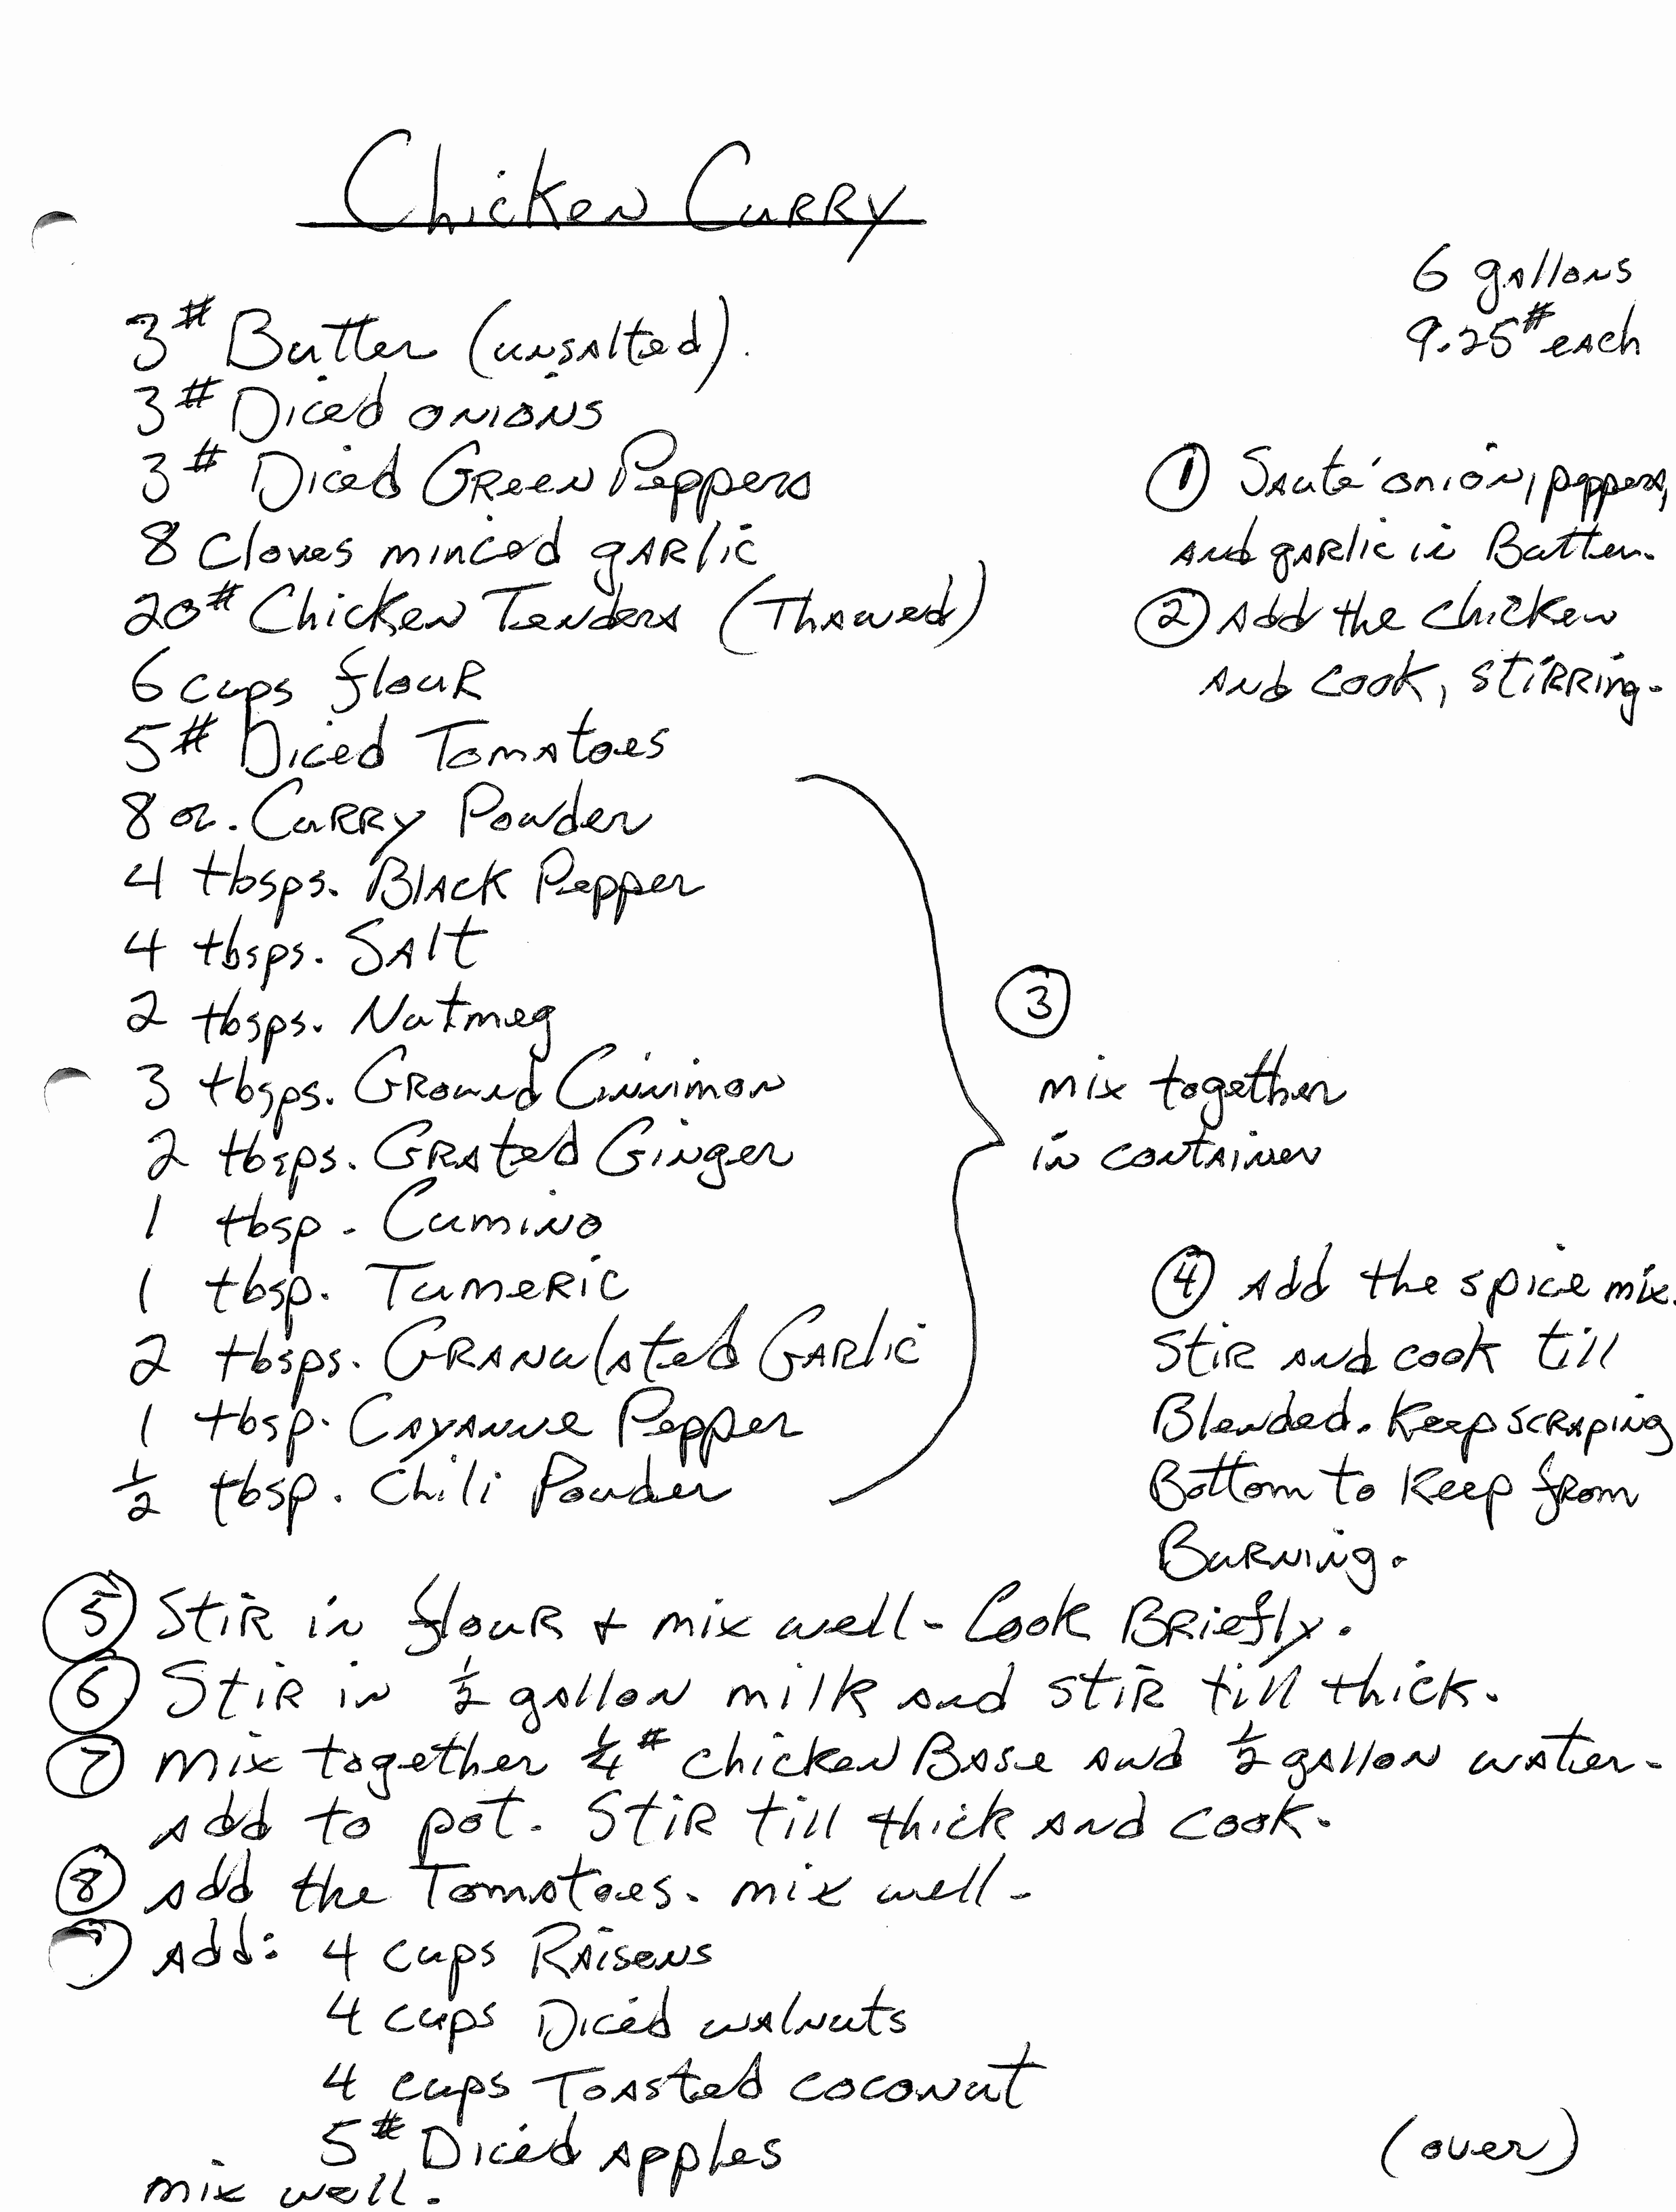 Chicken Curry
6 gallons
9.25# each
3# Butter (unsalted).
3# Diced onions
3# Diced Green Peppers
8 Cloves minced garlic
20# Chicken Tenders (Thawed)
6 cups flour
5# Diced Tomatoes
① Sauté onion, peppers,
and garlic in Butter.
② Add the chicken
and cook, stirring.
8 oz. Curry Powder
4 tbsps. Black Pepper
4 tbsps. Salt
2 tbsps. Nutmeg
3 tbsps. Ground Cinnimon
2 tbsps. Grated Ginger
1 tbsp. Cumino
1 tbsp. Tumeric
2 tbsps. Granulated Garlic
1 tbsp. Cayanne Pepper
½ tbsp. Chili Powder
③
mix together
in container
④ Add the spice mix.
Stir and cook till
Blended. Keep scraping
Bottom to keep from
Burning.
⑤ Stir in flour + mix well - Cook Briefly.
⑥ Stir in ½ gallon milk and stir till thick.
⑦ mix together ¼# chicken Base and ½ gallon water.
Add to pot. Stir till thick and cook.
⑧ Add the Tomatoes. mix well.
Add: 4 cups Raisens
4 cups Diced walnuts
4 cups Toasted coconut
5# Diced apples
mix well.
(over)